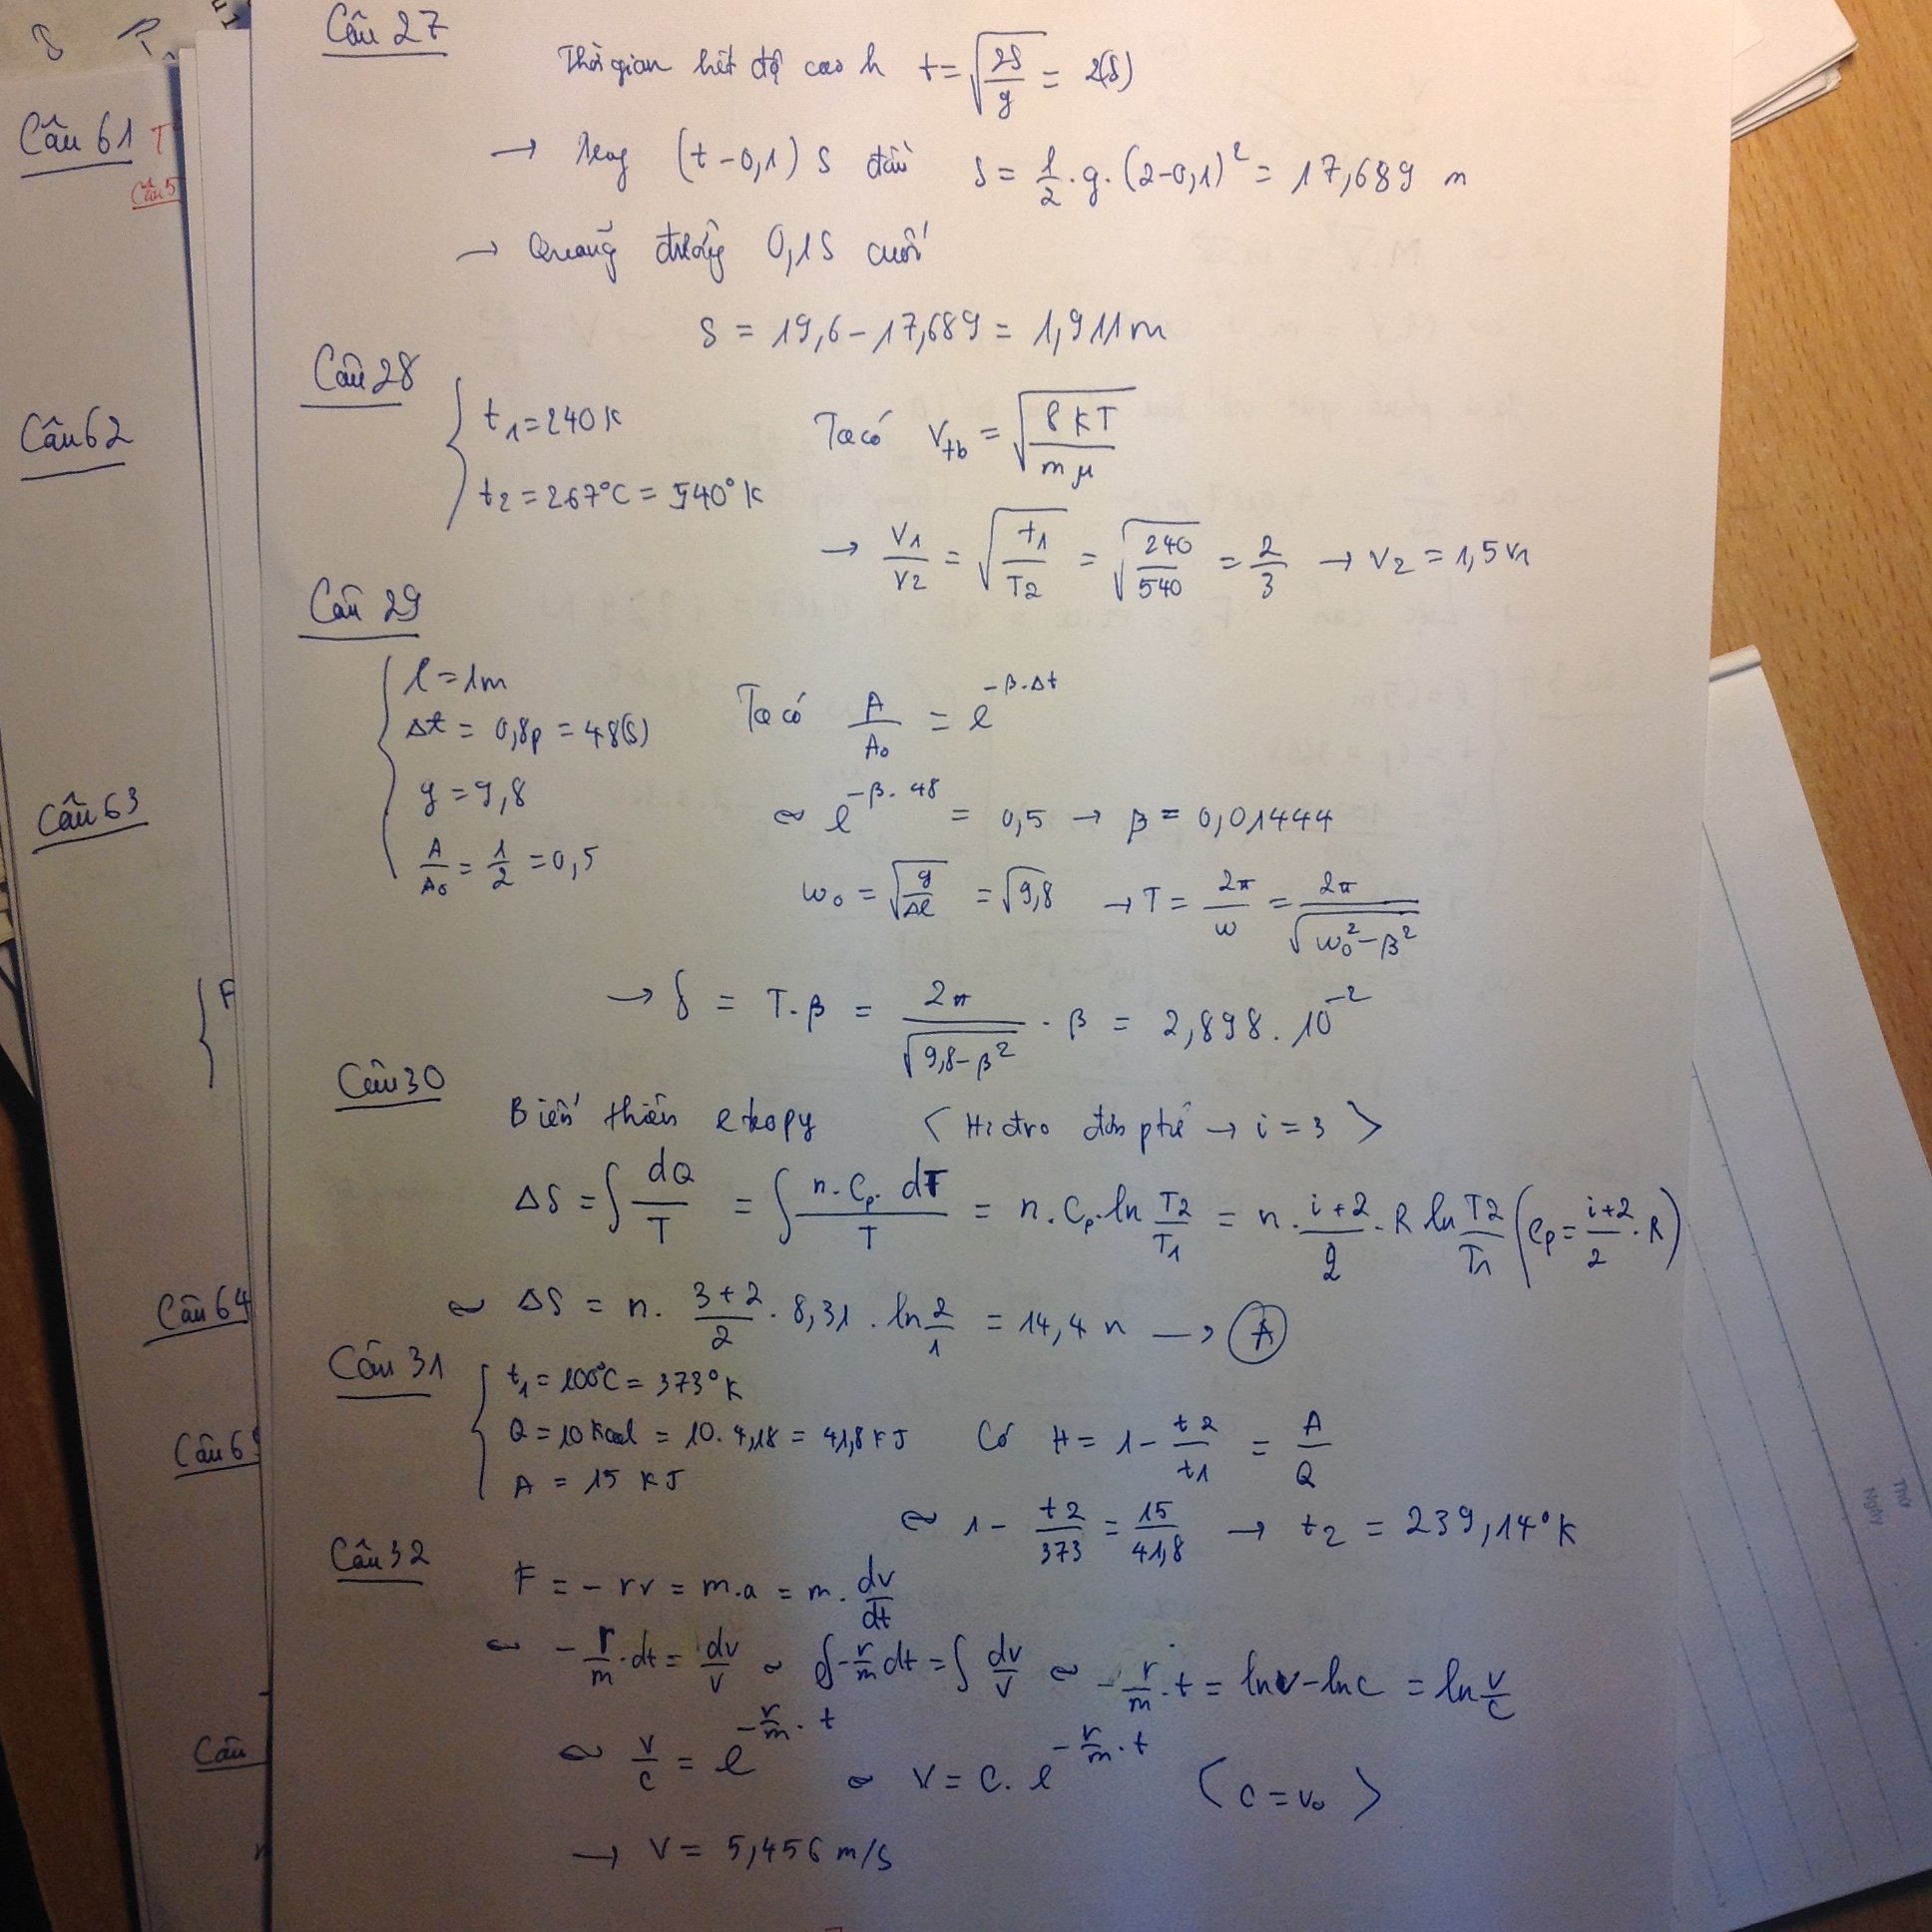 Câu 27
Thời gian hết độ cao h t = √(2S/g) = 2(s)
→ Trong (t - 0,1) s đầu S = 1/2 . g . (2-0,1)² = 17,689 m
→ Quãng đường 0,1S cuối
S = 19,6 - 17,689 = 1,911 m
Câu 28
t₁ = 240 K Ta có V_tb = √(8KT/mμ)
t₂ = 267°C = 540°K
→ V₁/V₂ = √(t₁/T₂) = √(240/540) = 2/3 → V₂ = 1,5 V₁
Câu 29
l = 1m
Δt = 0,8p = 48(s) Ta có A/A₀ = e^(-β.Δt)
g = 9,8
∾ e^(-β.48) = 0,5 → β = 0,01444
A/A₀ = 1/2 = 0,5
ω₀ = √(g/Δl) = √9,8 → T = 2π/ω = 2π/√(ω₀² - β²)
→ δ = T.β = 2π/√(9,8 - β²) . β = 2,898 . 10⁻²
Câu 30
Biến thiên etropy < Hidro đơn ptử → i = 3 >
ΔS = ∫ dQ/T = ∫ n.Cp.dT/T = n.Cp.ln T2/T1 = n . (i+2)/2 . R ln T2/T1 (Cp = (i+2)/2 . R)
∾ ΔS = n . (3+2)/2 . 8,31 . ln 2/1 = 14,4 n → A
Câu 31
t₁ = 100°C = 373°K
Q = 10 Kcal = 10. 4,18 = 41,8 KJ Có H = 1 - t2/t1 = A/Q
A = 15 KJ
∾ 1 - t2/373 = 15/41,8 → t₂ = 239,14°K
Câu 32
F = - rv = m.a = m . dv/dt
∾ - r/m . dt = dv/v ∾ ∫ - r/m dt = ∫ dv/v ∾ - r/m . t = lnv - lnc = ln v/c
∾ v/c = e^(-r/m . t) ∾ V = C. e^(-r/m . t) < C = v₀ >
→ V = 5,456 m/s
Câu 61
Câu 5
Câu 62
Câu 63
F
Câu 64
Câu 6
Câu
Thứ
Ngày